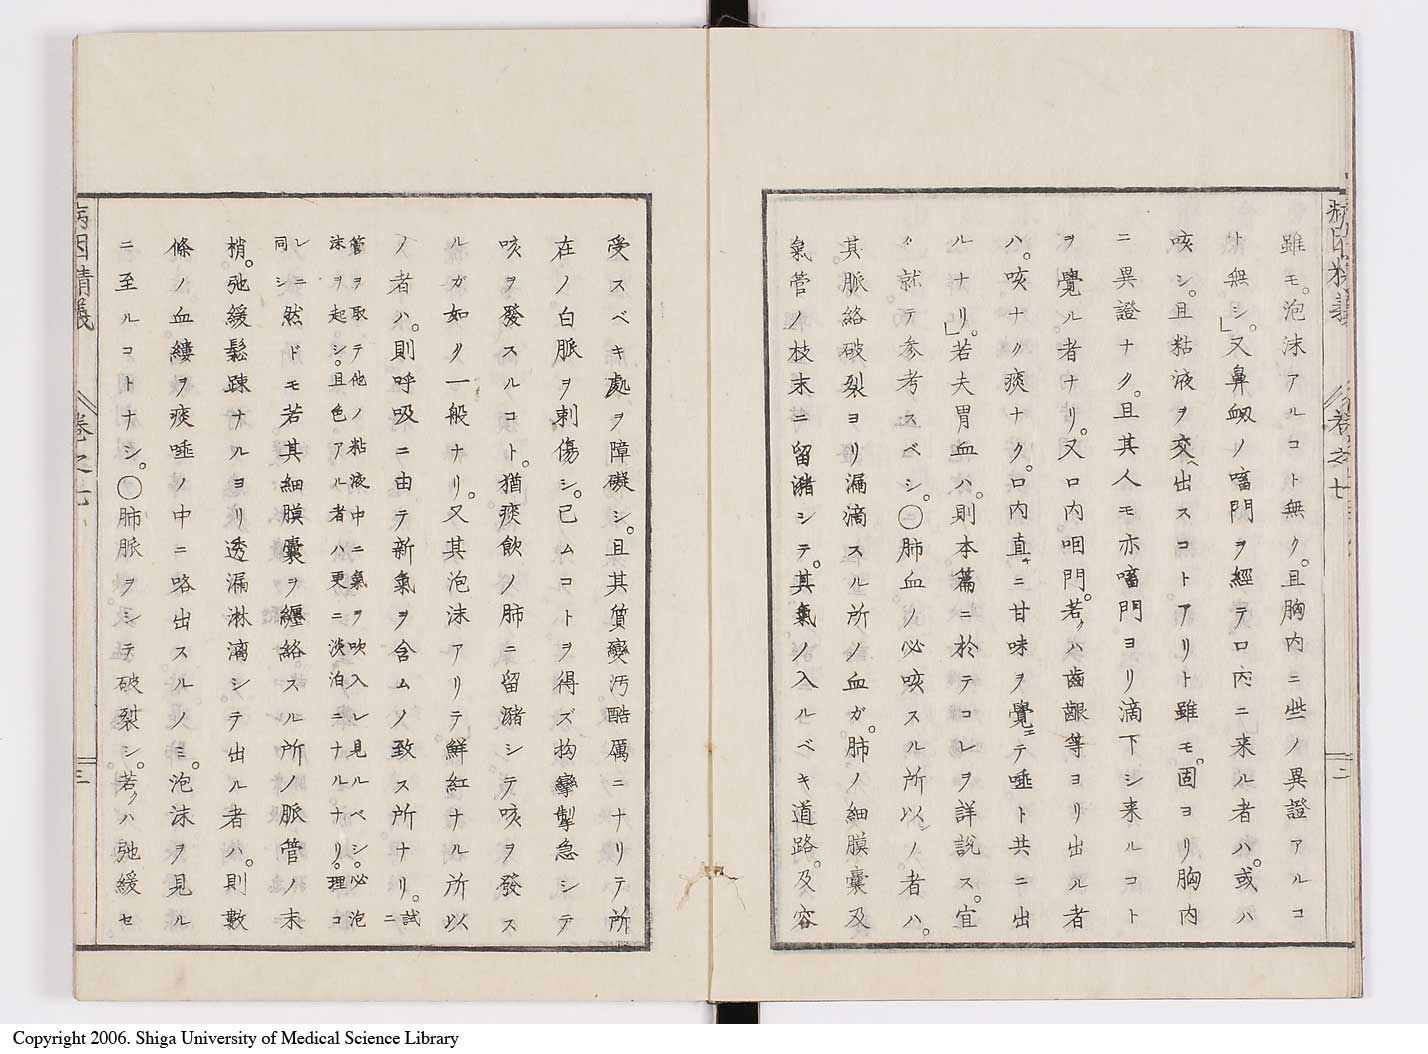 雖モ。泡沫アルコト無ク。且胸内ニ些ノ異證アルコ
ト無シ」。又鼻衂ノ嗜門ヲ經テ口内ニ来ル者ハ。或ハ
咳シ。且粘液ヲ交ヘ出スコトアリト雖モ。固ヨリ胸内
ニ異證ナク。且其人モ亦嗜門ヨリ滴下シ来ルコト
ヲ覺ル者ナリ。又口内咽門。若クハ齒齦等ヨリ出ル者
ハ。咳ナク痰ナク。口内直チニ甘味ヲ覺エテ唾ト共ニ出
ルナリ」。若夫胃血ハ。則本篇ニ於テコレヲ詳説ス。宜
ク就テ参考スベシ。㊁肺血ノ必咳スル所以ノ者ハ。
其脈絡破裂ヨリ漏滴スル所ノ血ガ。肺ノ細膜嚢及
氣管ノ枝末ニ留瀦シテ。其氣ノ入ルベキ道路。及容
受スベキ處ヲ障礙シ。且其質變汚酷厲ニナリテ所
在ノ白脈ヲ刺傷シ。已ムコトヲ得ズ拘攣掣急シテ
咳ヲ發スルコト。猶痰飲ノ肺ニ留瀦シテ咳ヲ發ス
ルガ如ク一般ナリ。又其泡沫アリテ鮮紅ナル所以
ノ者ハ。則呼吸ニ由テ新氣ヲ含ムノ致ス所ナリ。試ニ
管ヲ取テ他ノ粘液中ニ氣ヲ吹入レ見ルベシ。必泡
沫ヲ起シ。且色アル者ハ更ニ淡泊ニナルナリ。理コ
レニ同シ
然ドモ若其細膜嚢ヲ纒絡スル所ノ脈管ノ末
梢。弛緩鬆踈ナルヨリ透漏淋漓シテ出ル者ハ。則數
條ノ血縷ヲ痰唾ノ中ニ咯出スルノミ。泡沫ヲ見ル
ニ至ルコトナシ。◯肺脈ヲシテ破裂シ。若クハ弛緩セ
病因精義
卷之七
二
病因精義
卷之七
三
Copyright 2006. Shiga University of Medical Science Library